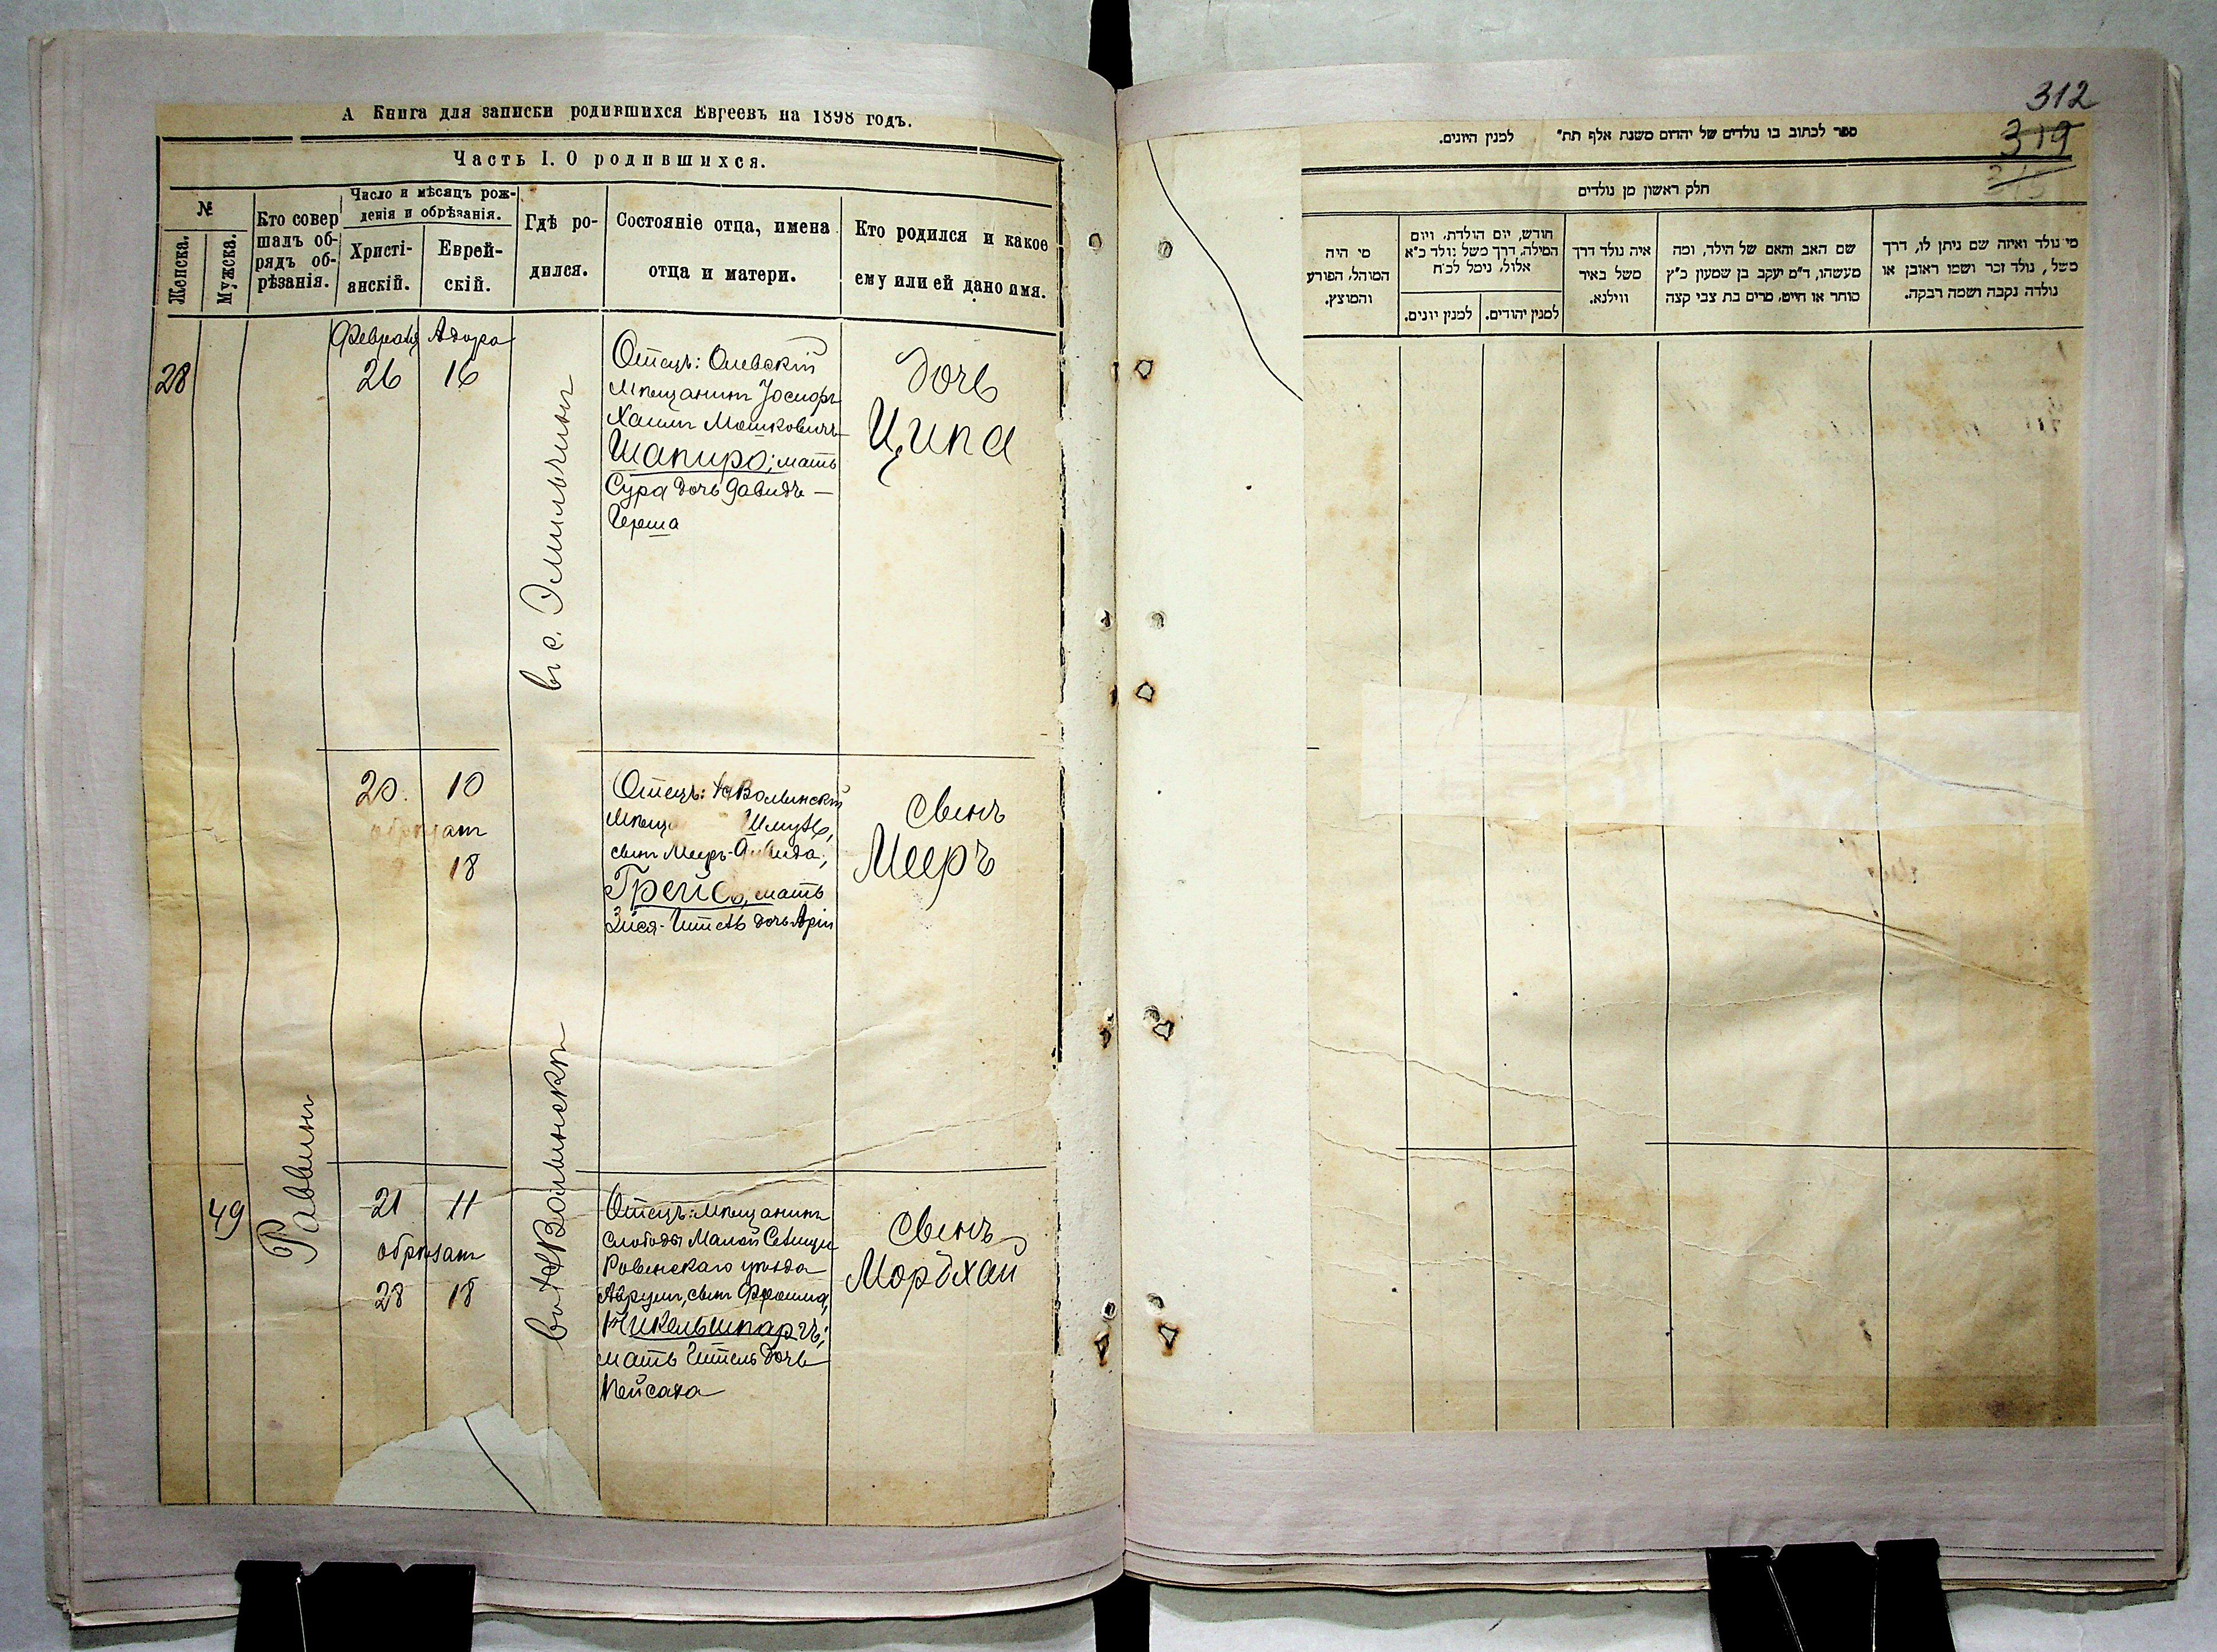 А Книга для записки родившихся Евреевъ на 1898 годъ.
Часть I. О родившихся.
№
Женска.
Мужска.
Кто совер
шалъ об-
рядъ об-
рѣзанія.
Число и мѣсяцъ рож-
денія и обрѣзанія.
Христі-
анскій.
Еврей-
скій.
Гдѣ ро-
дился.
Состояніе отца, имена
отца и матери.
Кто родился и какое
ему или ей дано имя.
28
Февраля Адара
26 16
въ с. Эмильчинѣ
Отецъ: Олевскій
Мѣщанинъ Иосифъ
Хаимъ Мошковичъ
Шапиро; мать
Сура дочь Давидъ —
Герша
дочь
Ципа
20. 10
обрѣзанъ
18
Отецъ: Волынскій
Мѣщ Шмуль,
сынъ Меера-Давида,
Грейсъ, мать
Зися-Гитель дочь Арія
сынъ
Мееръ
49
Раввинъ
21 11
обрѣзанъ
28 18
Волынскѣ
Отецъ: Мѣщанинъ
слободы Малой Селищи
Ровенскаго уѣзда
Аврумъ, сынъ Фроима,
Никельшпаргъ;
мать Гитель дочь
Пейсаха
сынъ
Мордхай
312
319
ספר לכתוב בו נולדים של יהדים משנת אלף תת״ למנין היונים.
חלק ראשון מן נולדים
מי נולד ואיזה שם ניתן לו, דרך
משל, נולד זכר ושמו ראובן או
נולדה נקבה ושמה רבקה.
שם האב והאם של הילד, ומה
מעשהו, ד״מ יעקב בן שמעון כ״ץ
סוחר או חייט, מרים בת צבי קצה
איה נולד דרך
משל באיר
ווילנא.
חודש, יום הולדת, ויום
המילה, דרך משל נולד כ״א
אלול, נימל לכ״ח
למנין יהודים.
למנין יונים.
מי היה
המוהל, הפורע
והמוצץ.